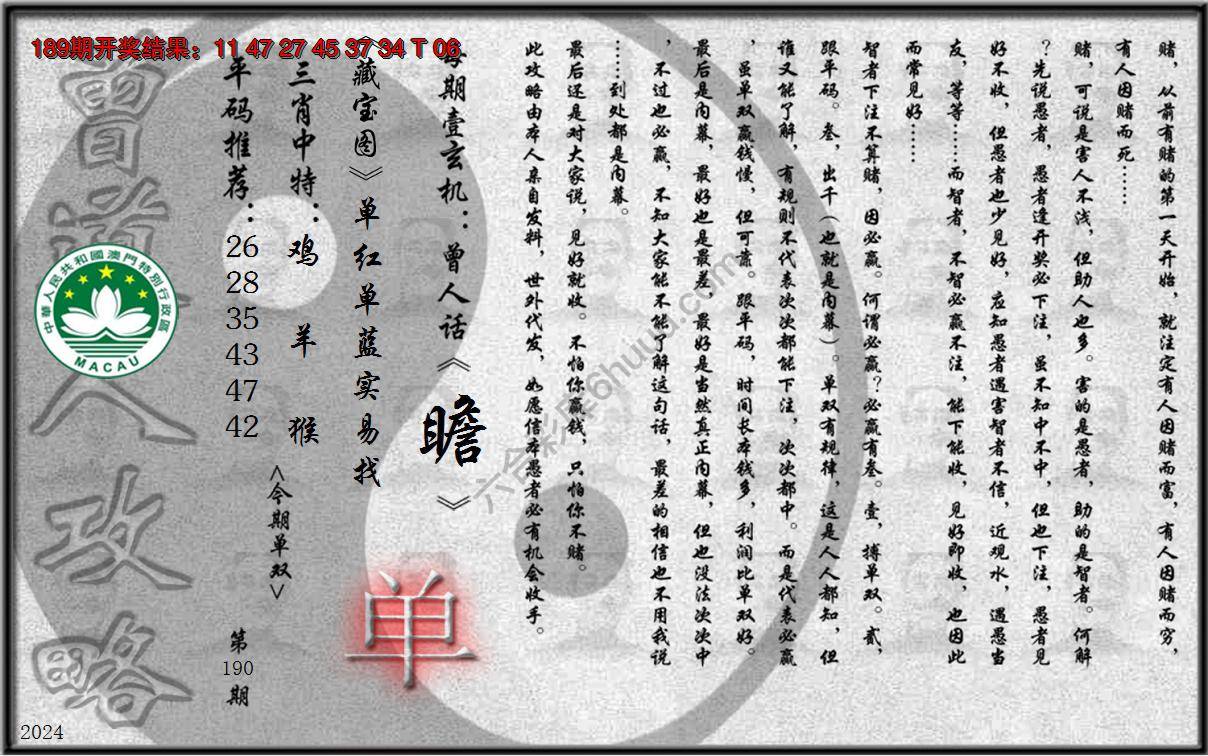 189期开奖结果：11 47 27 45 37 34 T 06
赌，从前有赌的第一天开始，就注定有人因赌而富，有人因赌而穷，
有人因赌而死……
赌，可说是害人不浅，但助人也多。害的是愚者，助的是智者。何解
？先说愚者，愚者逢开奖必下注，虽不知中不中，但也下注，愚者见
好不收，但愚者也少见好，应知愚者遇害智者不信，近观水，遇愚当
友，等等……而智者，不智必赢不注，能下能收，见好即收，也因此
而常见好……
智者下注不算赌，因必赢。何谓必赢？必赢有叁。壹，搏单双。贰，
跟平码。叁，出千（也就是内幕）。单双有规律，这是人人都知，但
谁又能了解，有规则不代表次次都能下注，次次都中。而是代表必赢
，虽单双赢钱慢，但可靠。跟平码，时间长本钱多，利润比单双好。
最后是内幕，最好也是最差，最好是当然真正内幕，但也没法次次中
，不过也必赢，不知大家能不能了解这句话，最差的相信也不用我说
……到处都是内幕。
最后还是对大家说，见好就收。不怕你赢钱，只怕你不赌。
此攻略由本人亲自发料，世外代发，如愿信本愚者必有机会收手。
每期壹玄机：曾人话《瞻》
《藏宝图》单红单蓝实易找
单
三肖中特：鸡 羊 猴
<今期单双>
平码推荐：26 28 35 43 47 42
第190期
曾道人攻略
中華人民共和國澳門特別行政區
MACAU
2024